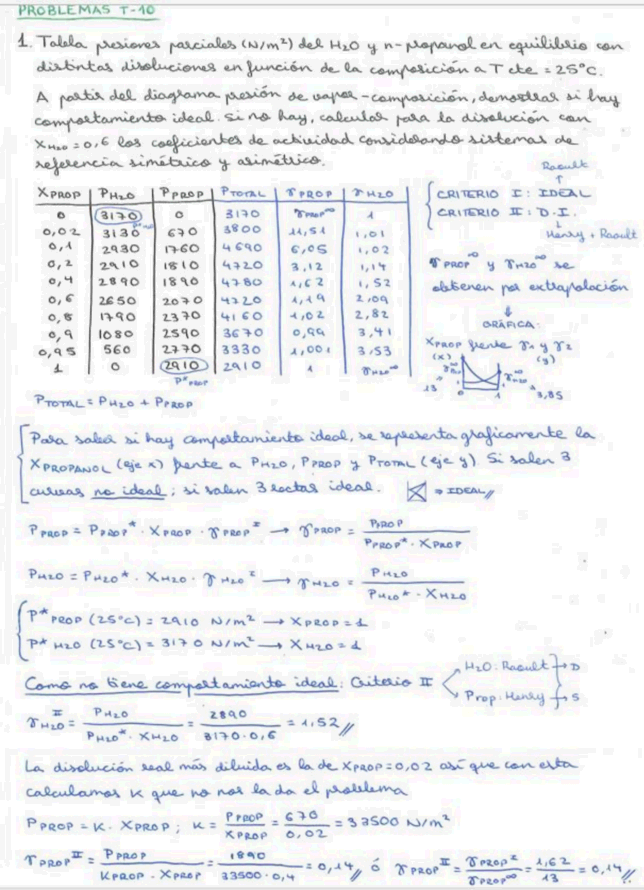 PROBLEMAS T-10
1. Tabla presiones parciales (N/m²) del H₂O y n-propanol en equilibrio con
distintas disoluciones en función de la composición a T cte = 25°C.
A partir del diagrama presión de vapor-composición, demostrar si hay
comportamiento ideal. Si no hay, calcular para la disolución con
X H₂O = 0,6 los coeficientes de actividad considerando sistemas de
referencia simétrico y asimétrico.
Raoult
↑
CRITERIO I: IDEAL
CRITERIO II: D.I.
↓
Henry + Raoult
XPROP | PH₂O | PPROP | PTOTAL | γPROP | γH₂O
0 | 3170 | 0 | 3170 | γPROP^∞ | 1
0,02 | 3130 | 670 | 3800 | 11,51 | 1,01
0,1 | 2930 | 1760 | 4690 | 6,05 | 1,02
0,2 | 2910 | 1810 | 4720 | 3,12 | 1,14
0,4 | 2890 | 1890 | 4780 | 1,62 | 1,52
0,6 | 2650 | 2070 | 4720 | 1,19 | 2,09
0,8 | 1790 | 2370 | 4160 | 1,02 | 2,82
0,9 | 1080 | 2590 | 3670 | 0,99 | 3,41
0,95 | 560 | 2770 | 3330 | 1,001 | 3,53
1 | 0 | 2910 | 2910 | 1 | γH₂O^∞
P*PROP
γPROP^∞ y γH₂O^∞ se
obtienen por extrapolación
↓
GRÁFICA:
XPROP frente γ1 y γ2
(x) (y)
13 0 1 3,85
PTOTAL = PH₂O + PPROP
Para saber si hay comportamiento ideal, se representa gráficamente la
XPROPANOL (eje x) frente a PH₂O, PPROP y PTOTAL (eje y). Si salen 3
curvas no ideal; si salen 3 rectas ideal. ⇒ IDEAL //
PPROP = PPROP* · XPROP · γPROP^I → γPROP = PPROP / PPROP* · XPROP
PH₂O = PH₂O* · XH₂O · γH₂O^I → γH₂O = PH₂O / PH₂O* · XH₂O
P*PROP (25°C) = 2910 N/m² → XPROP = 1
P*H₂O (25°C) = 3170 N/m² → XH₂O = 1
Como no tiene comportamiento ideal: Criterio II
H₂O: Raoult → D
Prop: Henry → S
γH₂O^II = PH₂O / PH₂O* · XH₂O = 2890 / 3170·0,6 = 1,52 //
La disolución real más diluida es la de XPROP = 0,02 así que con esta
calculamos K que no nos la da el problema
PPROP = K · XPROP; K = PPROP / XPROP = 670 / 0,02 = 33500 N/m²
γPROP^II = PPROP / KPROP · XPROP = 1890 / 33500·0,4 = 0,14 // ó γPROP^II = γPROP^I / γPROP^∞ = 1,62 / 13 = 0,14 //